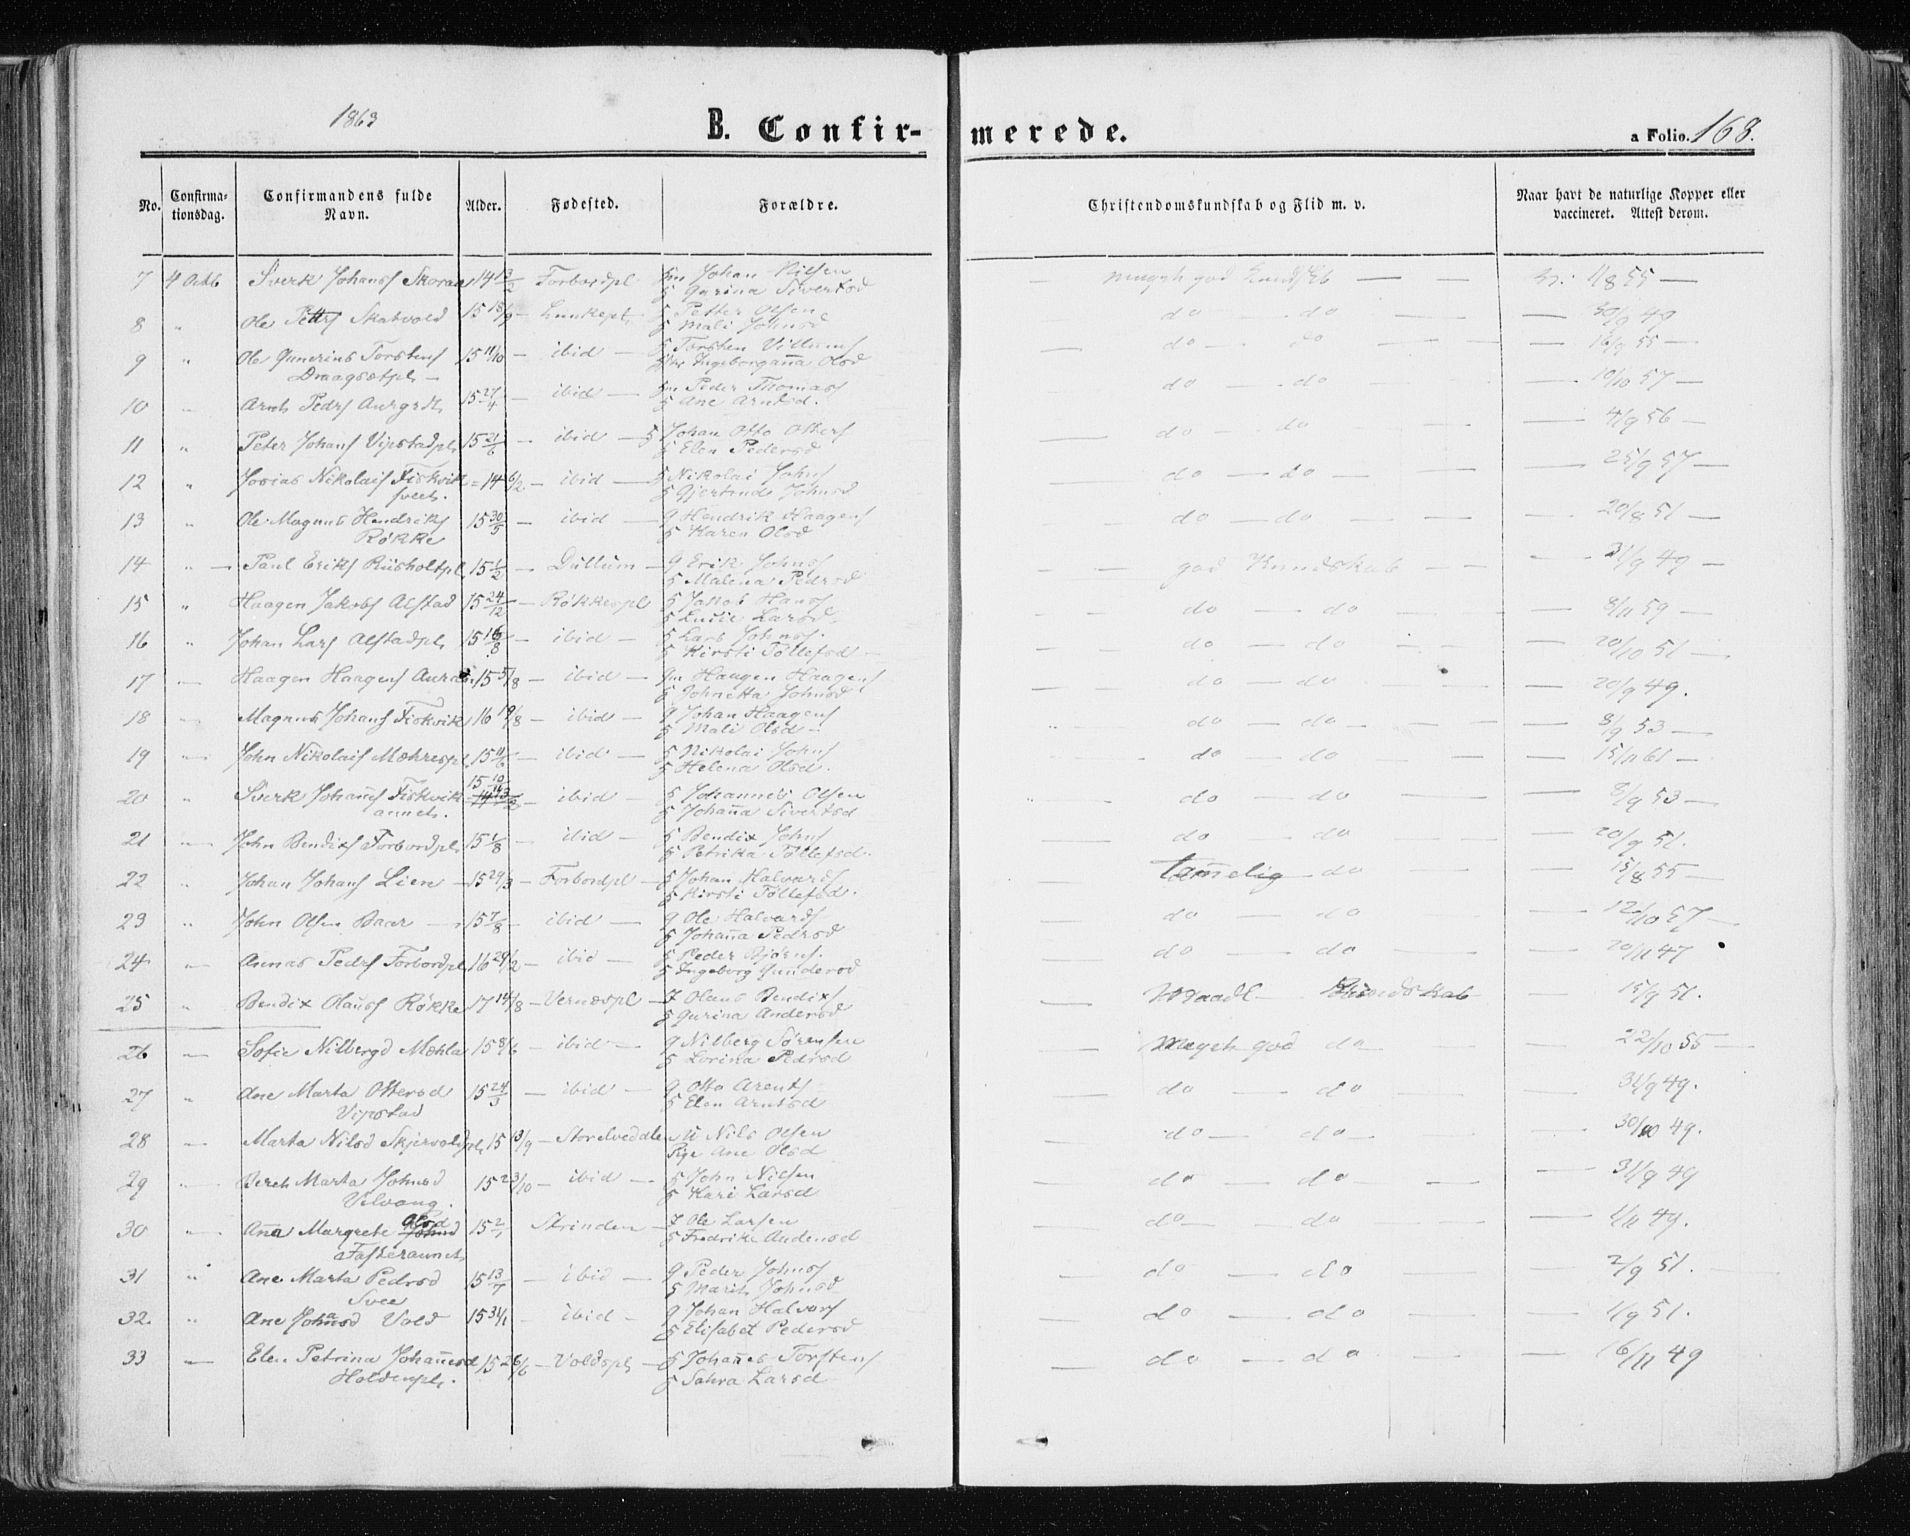 1863
B. Confir-
merede.
a Folio. 168.
No.
Confirma-
tionsdag.
Confirmandens fulde
Navn.
Alder.
Fødested.
Forældre.
Christendomskundskab og Flid m. v.
Naar havt de naturlige Kopper eller
vaccineret. Attest derom.
7 4 Octb Sverk Johans 14 13/2 Forbordpl Johan Nilsen
Gurina Sivertsd
god 11/8 55 —
8 " Ole Skatvold 15 — Petter Olsen
Mali Johnsd
— do — do — —
9 " Ole Gunerius Torstens 15 11/10 — ibid — Torsten Villums
Ingeborgaña Olsd
— do — do — 16/9 55 —
10 Arnt Peders 15 27/4 — ibid — Peder Thomas
5 Ane Arntsd.
do — do — 10/10 57 —
11 " Peter Johans Vipstadpl 15 21/6 — ibid — 5 Johan Otto Otters
5 Elen Pedersd
— do — do — 4/9 56 —
12 " Josias Nikolais Fiskvik 14 6/2 — ibid — 5 Nikolai Johns
5 Gjertrud Johnsd
— do — do — 25/9 57 —
13 " Ole Magnus Hendriks 15 30/5 — ibid — g Hendrik Haagens
Røkke 5 Karen Olsd
— do — do — 20/8 51 —
14 " — Paul Eriks 15 1/2 — Dullum — g Erik Johns
5 Malena Pedrsd
— — god Kundskab — — 31/9 49 —
15 " Haagen Jakobs Alstad 15 24/12 — Røkkespl 5 Jakob Hans
5 Larsd
— do — do — 8/11 59 —
16 " Johan Lars Alstadpl 15 16/8 — ibid — 5 Lars Johns.
5 Kirsti Tollefsd
— do — do — 20/10 51 —
17 — Haagen Haagens 15 5/8 — ibid — Haagen Haagens
5 Johnetta Johnsd
— do — do — 20/9 49.
18 Magnus Johans Fiskvik 16 19/8 — ibid — g Johan Haagens
5 Mali Olsd
— do — do — 8/9 53 —
19 — John Nikolais Mæhrespl 15 11/6 — ibid — 5 Nikolai Johns
5 Helena Olsd.
— do — do — 15/11 61 —
20 " Sverk Johañs Fiskvik 15 — ibid — 5 Johannes Olsen
aunet. 5 Johaña Sivertsd
— do — do — 8/9 53 —
21 — John Bendixs Forbordpl 15 1/8 — ibid — 5 Bendix Johns
5 Petrika Tollefsd.
— do — do — 20/9 51.
22 " Johan Johans Lien — 15 29/3 — Forbordpl — 5 Johan Halvards
5 Kirsti Tollefsd.
— tam̃elig do — 15/8 55 —
23 " John Olsen Baar — 15 7/8 — ibid — g Ole Halvards
5 Johaña Pedrsd
— do — do — 12/10 57 —
24 " Annas Pedrs Forbordpl 16 29/2 — ibid — 5 Peder Bjørns.
5 Ingeborg Gundersd
— do — do — 20/11 47
25 " Bendix Olaus Røkke 17 14/8 — Vernæspl — 7 Olaus Bendixs
5 Gurina Andersd
— Maadl. Kundskab — 15/9 51.
26 — Sofie Nilbergd Mæhla 15 8/6 — ibid — g Nilberg Sørensen
5 Lorina Pedrsd
— Meget god do — 22/10 55 —
27 " Ane Marta Ottersd 15 24/3 — ibid — g Otto Arents
Vipstad 5 Elen Arntsd
do — do — 31/9 49.
28 — Marta Nilsd Skjervoldpl 15 13/9 — Storelvedalen Nils Olsen
Pige Ane Olsd
— do — do — 30/10 49.
29 — Bereh Marta Johnsd 15 23/10 — ibid — 5 John Nilsen
Vilvang. 5 Kari Larsd
— do — do — 31/9 49
30 " Aña Margrete Olsd 15 2/1 Strinden — 7 Ole Larsen
Fasteraunet 5 Fredrika Andersd
— do — do — 2/11 49.
31 " Ane Marta Pedrsd 15 13/7 — ibid — g Peder Johns
Svee 5 Marit Johnsd
— do — do — 2/9 51.
32. " Ane Johansd Vold 15 31/1 — ibid — g Johan Halvors
5 Elisabet Pedersd
— do — do — 1/9 51.
33 — Elen Petrina Johañesd 15 26/6 — Voldspl — 5 Johañes Torstens
Holdenpl. 5 Sahra Larsd
— do — do — 16/11 49